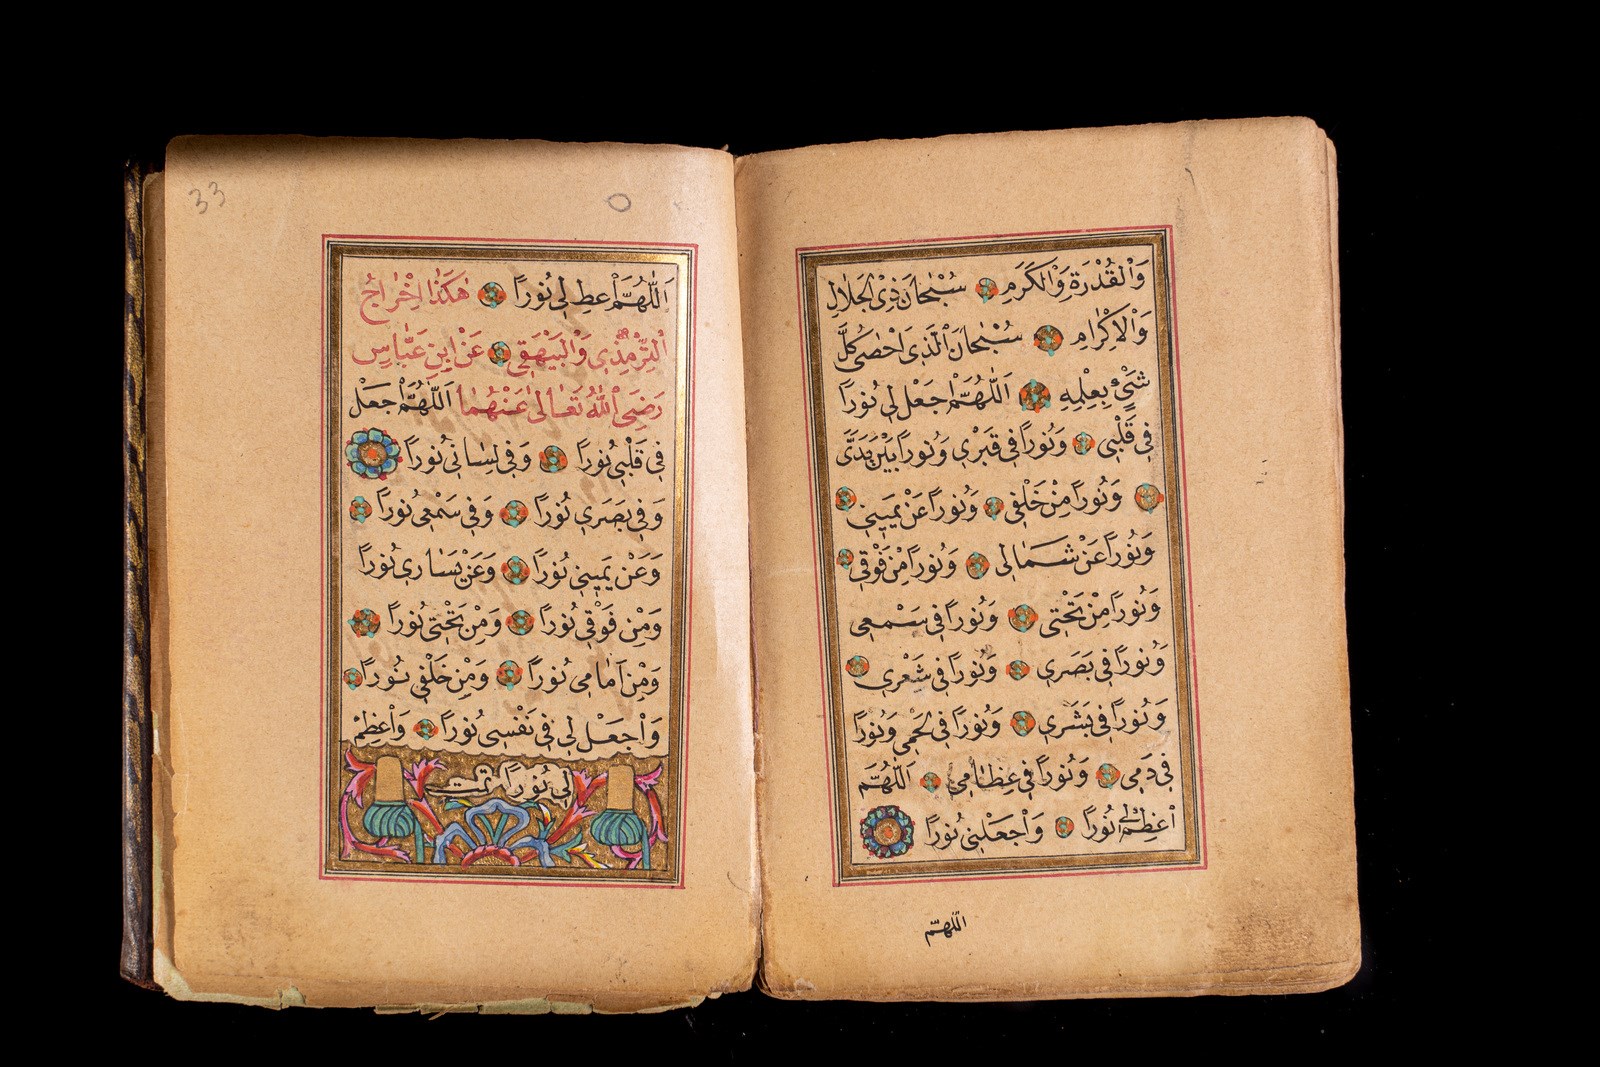 وَالْقُدْرَةِ وَالْكَرَمِ سُبْحَانَ ذِي الْجَلَالِ
وَالْاِكْرَامِ سُبْحَانَ الَّذِي اَحْصٰى كُلَّ
شَيْءٍ بِعِلْمِهِ اَللّٰهُمَّ اجْعَلْ لِي نُورًا
فِي قَلْبِي وَنُورًا فِي قَبْرِي وَنُورًا بَيْنَ يَدَيَّ
وَنُورًا مِنْ خَلْفِي وَنُورًا عَنْ يَمِينِي
وَنُورًا عَنْ شِمَالِي وَنُورًا مِنْ فَوْقِي
وَنُورًا مِنْ تَحْتِي وَنُورًا فِي سَمْعِي
وَنُورًا فِي بَصَرِي وَنُورًا فِي شَعْرِي
وَنُورًا فِي بَشَرِي وَنُورًا فِي لَحْمِي وَنُورًا
فِي دَمِي وَنُورًا فِي عِظَامِي اَللّٰهُمَّ
اَعْظِمْ لِي نُورًا وَاجْعَلْنِي نُورًا
اللّهمّ
33
اَللّٰهُمَّ اعطِ لِي نُورًا هٰكَذَا اِخْرَاجُ
التِّرْمِذِي وَالْبَيْهَقِي عَنْ ابْنِ عَبَّاسٍ
رَضِيَ اللّٰهُ تَعَالٰى عَنْهُمَا اَللّٰهُمَّ اجْعَلْ
فِي قَلْبِي نُورًا وَفِي لِسَانِي نُورًا
وَفِي بَصَرِي نُورًا وَفِي سَمْعِي نُورًا
وَعَنْ يَمِينِي نُورًا وَعَنْ يَسَارِي نُورًا
وَمِنْ فَوْقِي نُورًا وَمِنْ تَحْتِي نُورًا
وَمِنْ اَمَامِي نُورًا وَمِنْ خَلْفِي نُورًا
وَاجْعَلْ لِي فِي نَفْسِي نُورًا وَاَعْظِمْ
لِي نُورًا تمت